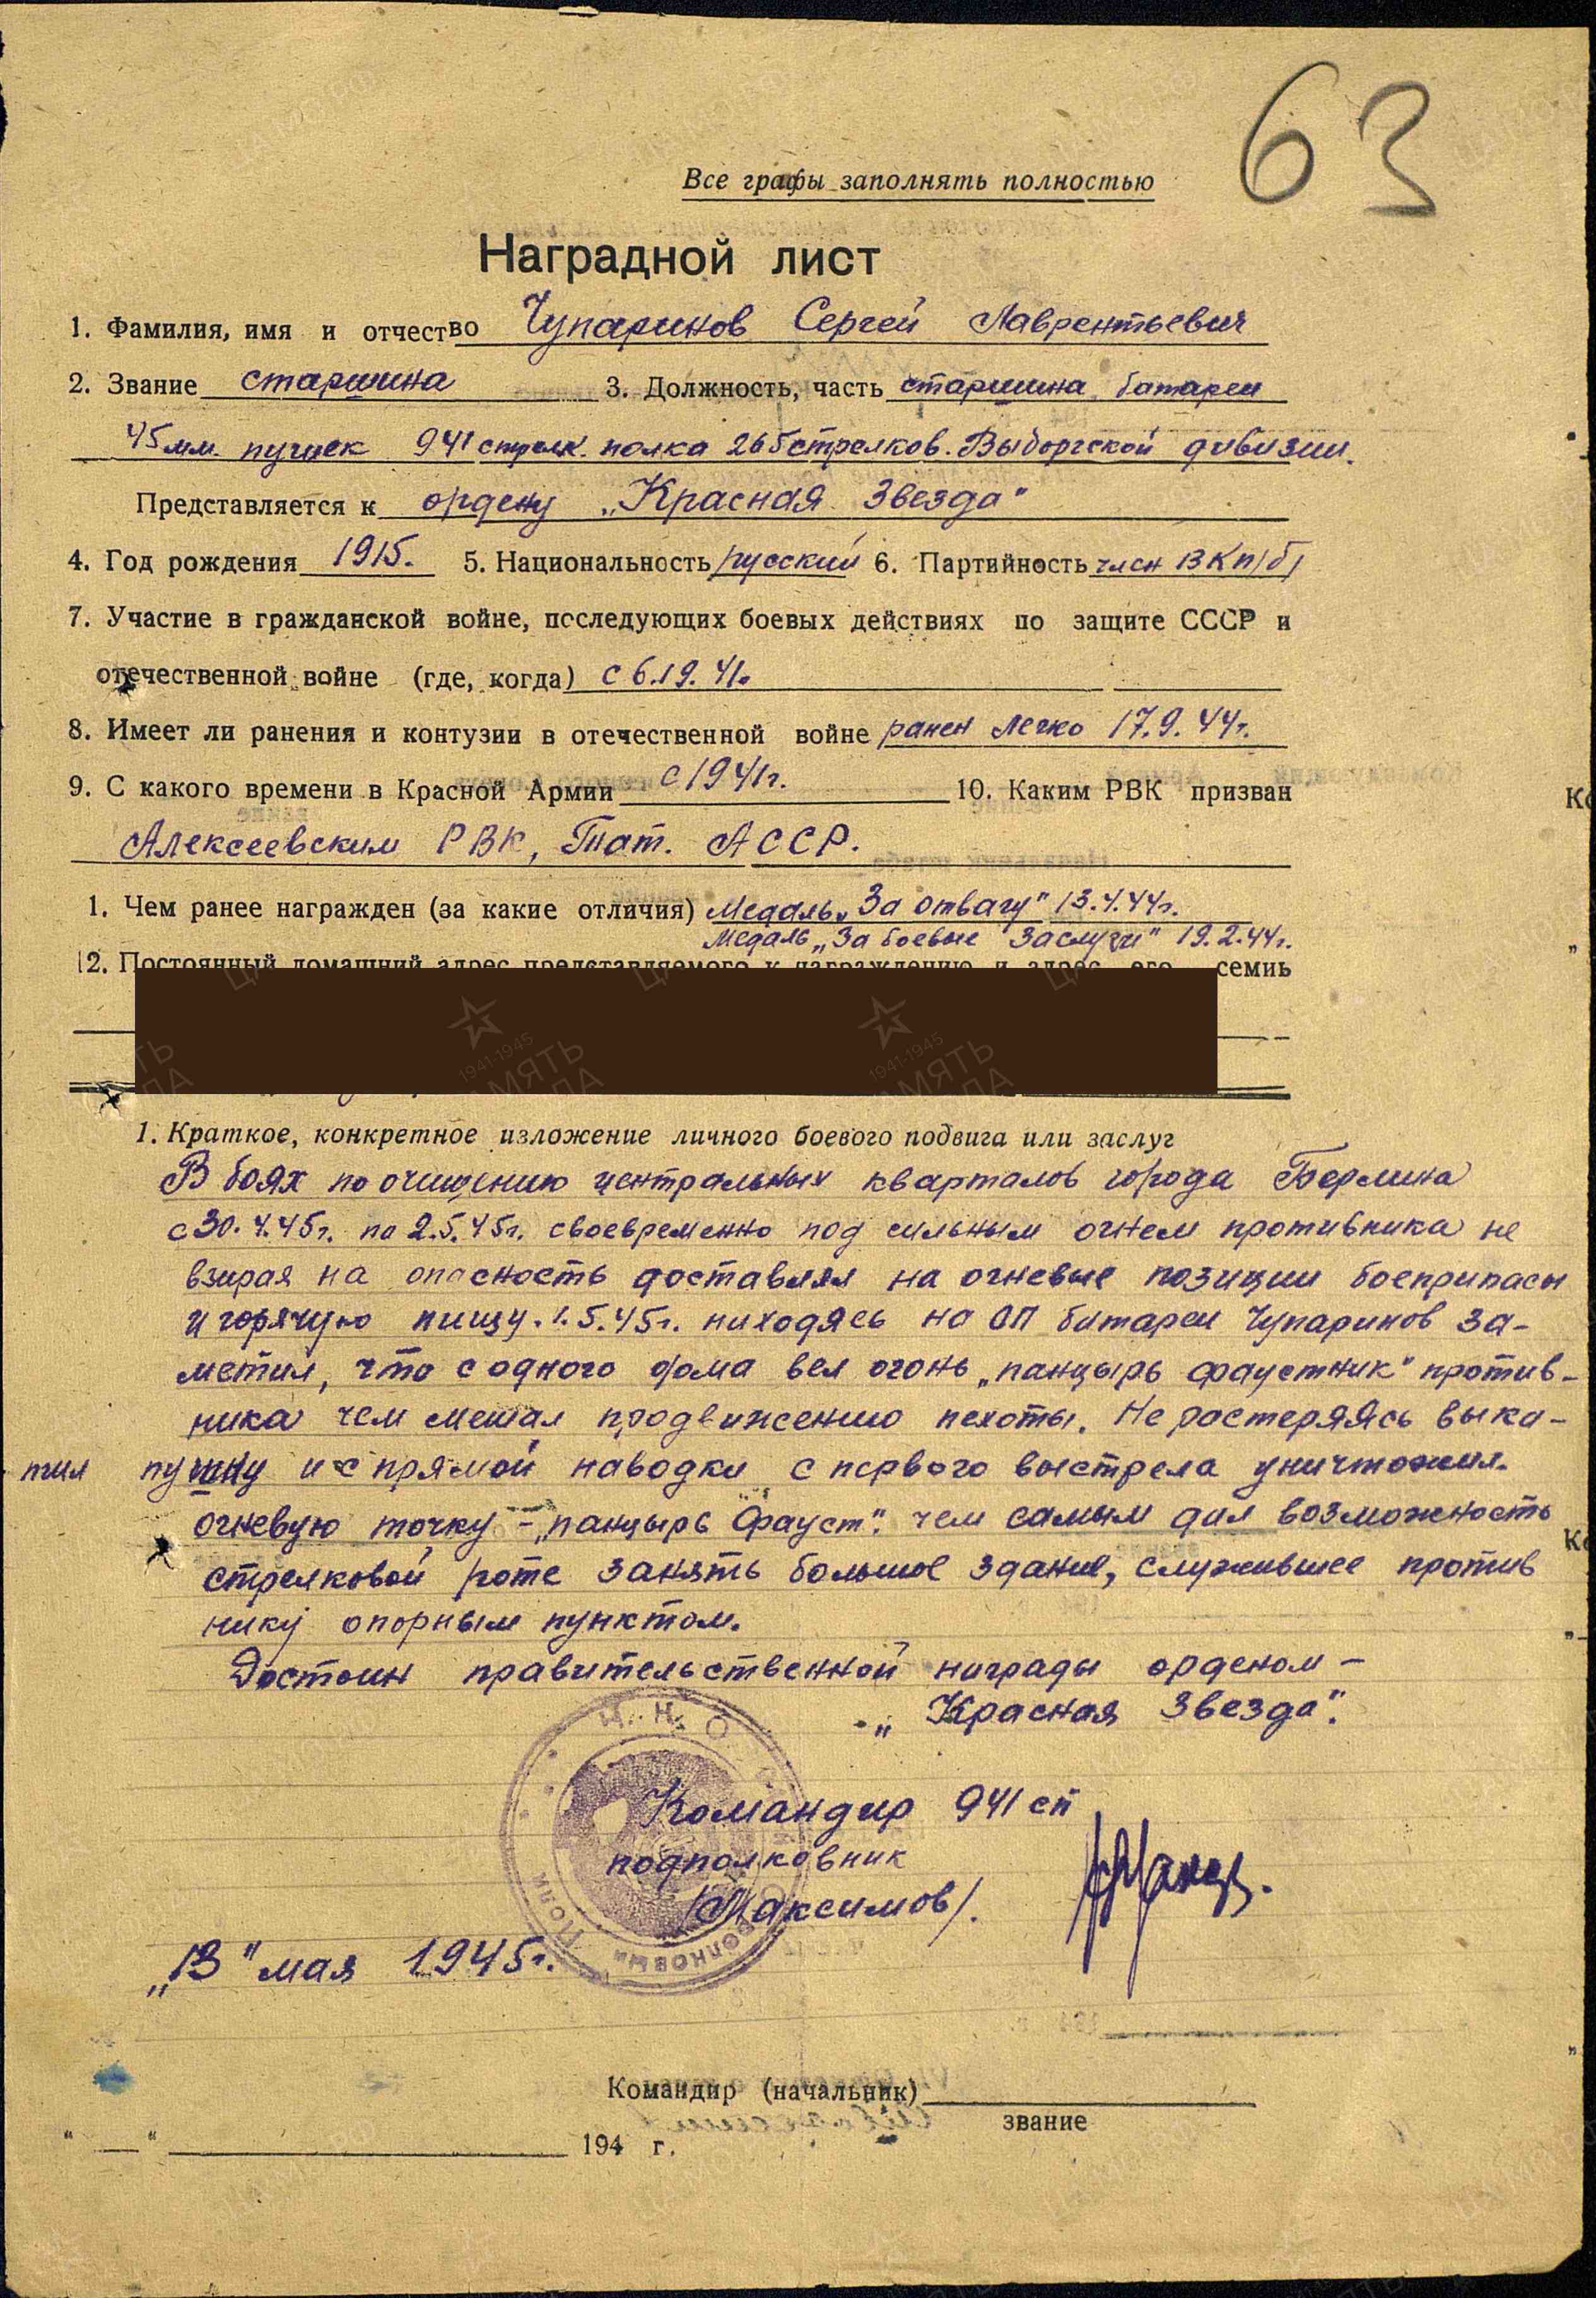 63
Все графы заполнять полностью
Наградной лист
1. Фамилия, имя и отчество Чупаринов Сергей Лаврентьевич
2. Звание старшина 3. Должность, часть старшина батареи
45 мм. пушек 941 стрелк. полка 265 стрелков. Выборгской дивизии.
Представляется к ордену „Красная Звезда"
4. Год рождения 1915. 5. Национальность русский 6. Партийность член ВКП/б/
7. Участие в гражданской войне, последующих боевых действиях по защите СССР и
отечественной войне (где, когда) с 6.19.41.
8. Имеет ли ранения и контузии в отечественной войне ранен легко 17.9.44г.
9. С какого времени в Красной Армии с 1941г. 10. Каким РВК призван
Алексеевским РВК, Тат. АССР.
1. Чем ранее награжден (за какие отличия) Медаль „За отвагу" 13.4.44г.
Медаль „За боевые заслуги" 19.2.44г.
12. Постоянный домашний адрес представляемого к награждению и адрес его семиь
1. Краткое, конкретное изложение личного боевого подвига или заслуг
В боях по очищению центральных кварталов города Берлина
с 30.4.45г. по 2.5.45г. своевременно под сильным огнем противника не
взирая на опасность доставлял на огневые позиции боеприпасы
и горячую пищу. 1.5.45г. находясь на ОП батареи Чупаринов за-
метил, что с одного дома вел огонь „панцырь фаустник" против-
ника чем мешал продвижению пехоты. Не растеряясь выка-
тил пушку и с прямой наводки с первого выстрела уничтожил
огневую точку - „панцырь Фауст". чем самым дал возможность
стрелковой роте занять большое здание, служившее против
нику опорным пунктом.
Достоин правительственной награды орденом -
„Красная Звезда".
Командир 941 сп
подполковник
/Максимов/.
„13" мая 1945г.
Командир (начальник)
звание
"   " 194 г.